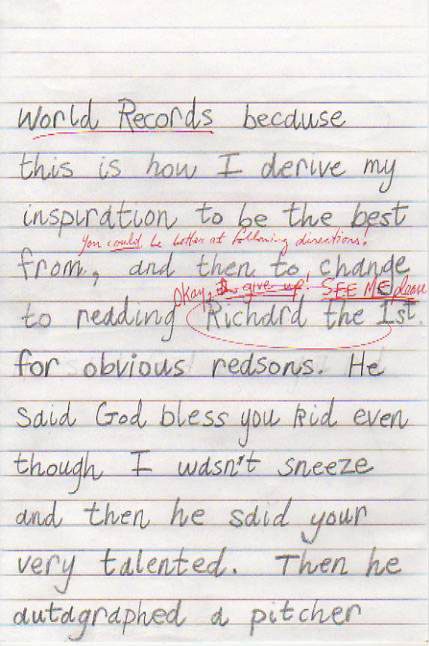 World Records because
this is how I derive my
inspiration to be the best
You could be better at following directions!
from, and then to change
Okay, I give up! SEE ME please
to reading Richard the Ist.
for obvious reasons. He
said God bless you kid even
though I wasn't sneeze
and then he said your
very talented. Then he
autagraphed a pitcher